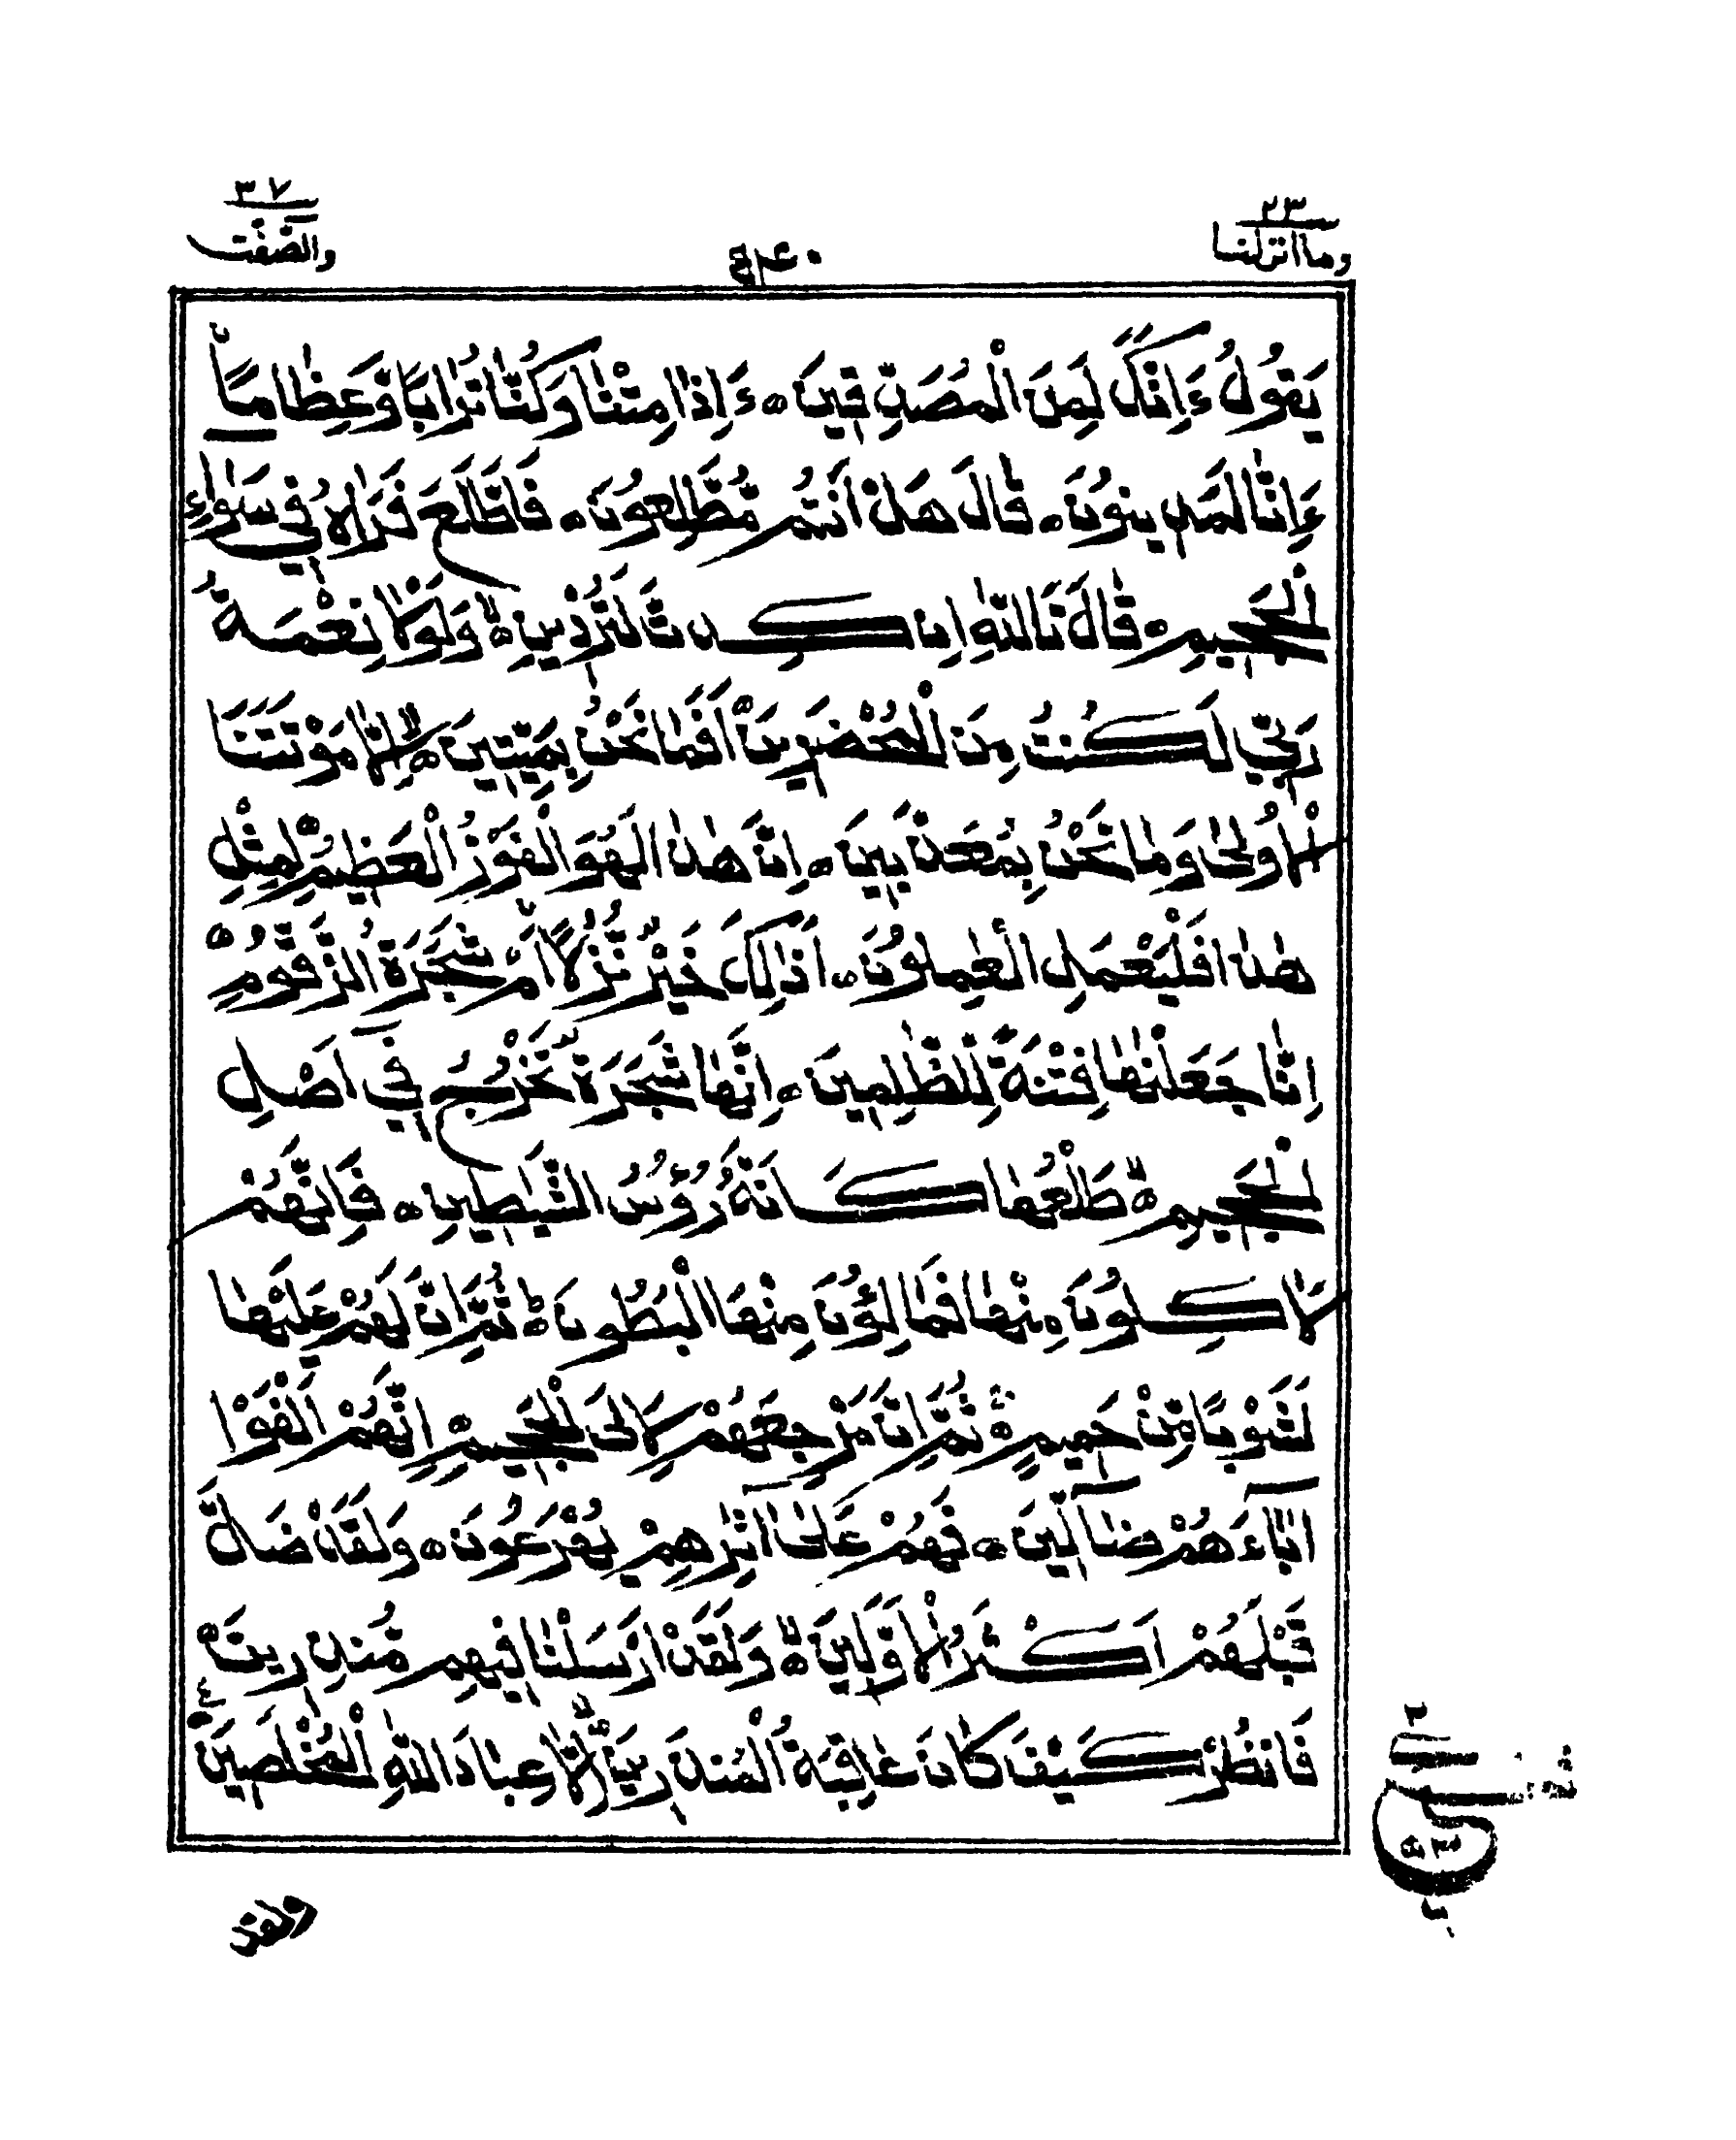 ٣٧
والصّٰٓفّٰت
٢٣
وماانزلنا
يَقُوۡلُ ءَاِنَّكَ لَمِنَ الۡمُصَدِّقِيۡنَ ءَاِذَا مِتۡنَا وَكُنَّا تُرَابًا وَّعِظَامًا
ءَاِنَّا لَمَدِيۡنُوۡنَ قَالَ هَلۡ اَنۡتُمۡ مُّطَّلِعُوۡنَ فَاطَّلَعَ فَرَاٰهُ فِىۡ سَوَآءِ
الۡجَحِيۡمِ قَالَ تَاللّٰهِ اِنۡ كِدۡتَّ لَتُرۡدِيۡنِ وَلَوۡلَا نِعۡمَةُ
رَبِّىۡ لَكُنۡتُ مِنَ الۡمُحۡضَرِيۡنَ اَفَمَا نَحۡنُ بِمَيِّتِيۡنَ اِلَّا مَوۡتَتَنَا
الۡاُوۡلٰى وَمَا نَحۡنُ بِمُعَذَّبِيۡنَ اِنَّ هٰذَا لَهُوَ الۡفَوۡزُ الۡعَظِيۡمُ لِمِثۡلِ
هٰذَا فَلۡيَعۡمَلِ الۡعٰمِلُوۡنَ اَذٰلِكَ خَيۡرٌ نُّزُلًا اَمۡ شَجَرَةُ الزَّقُّوۡمِ
اِنَّا جَعَلۡنٰهَا فِتۡنَةً لِّلظّٰلِمِيۡنَ اِنَّهَا شَجَرَةٌ تَخۡرُجُ فِىۡٓ اَصۡلِ
الۡجَحِيۡمِ طَلۡعُهَا كَاَنَّهٗ رُءُوۡسُ الشَّيٰطِيۡنِ فَاِنَّهُمۡ
لَاٰكِلُوۡنَ مِنۡهَا فَمَالِـُٔوۡنَ مِنۡهَا الۡبُطُوۡنَ ثُمَّ اِنَّ لَهُمۡ عَلَيۡهَا
لَشَوۡبًا مِّنۡ حَمِيۡمٍ ثُمَّ اِنَّ مَرۡجِعَهُمۡ لَا۟اِلَى الۡجَحِيۡمِ اِنَّهُمۡ اَلۡفَوۡا
اٰبَآءَهُمۡ ضَآلِّيۡنَ فَهُمۡ عَلٰٓى اٰثٰرِهِمۡ يُهۡرَعُوۡنَ وَلَقَدۡ ضَلَّ
قَبۡلَهُمۡ اَكۡثَرُ الۡاَوَّلِيۡنَ وَلَقَدۡ اَرۡسَلۡنَا فِيۡهِمۡ مُّنۡذِرِيۡنَ
فَانۡظُرۡ كَيۡفَ كَانَ عَاقِبَةُ الۡمُنۡذَرِيۡنَ اِلَّا عِبَادَ اللّٰهِ الۡمُخۡلَصِيۡنَ
ولقد